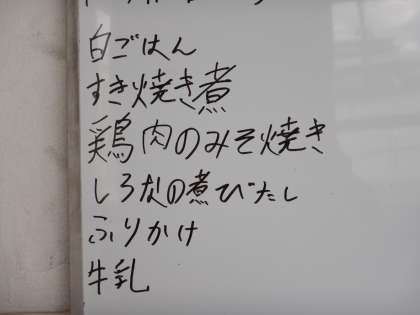 白ごはん
すき焼き煮
鶏肉のみそ焼き
しろなの煮びたし
ふりかけ
牛乳